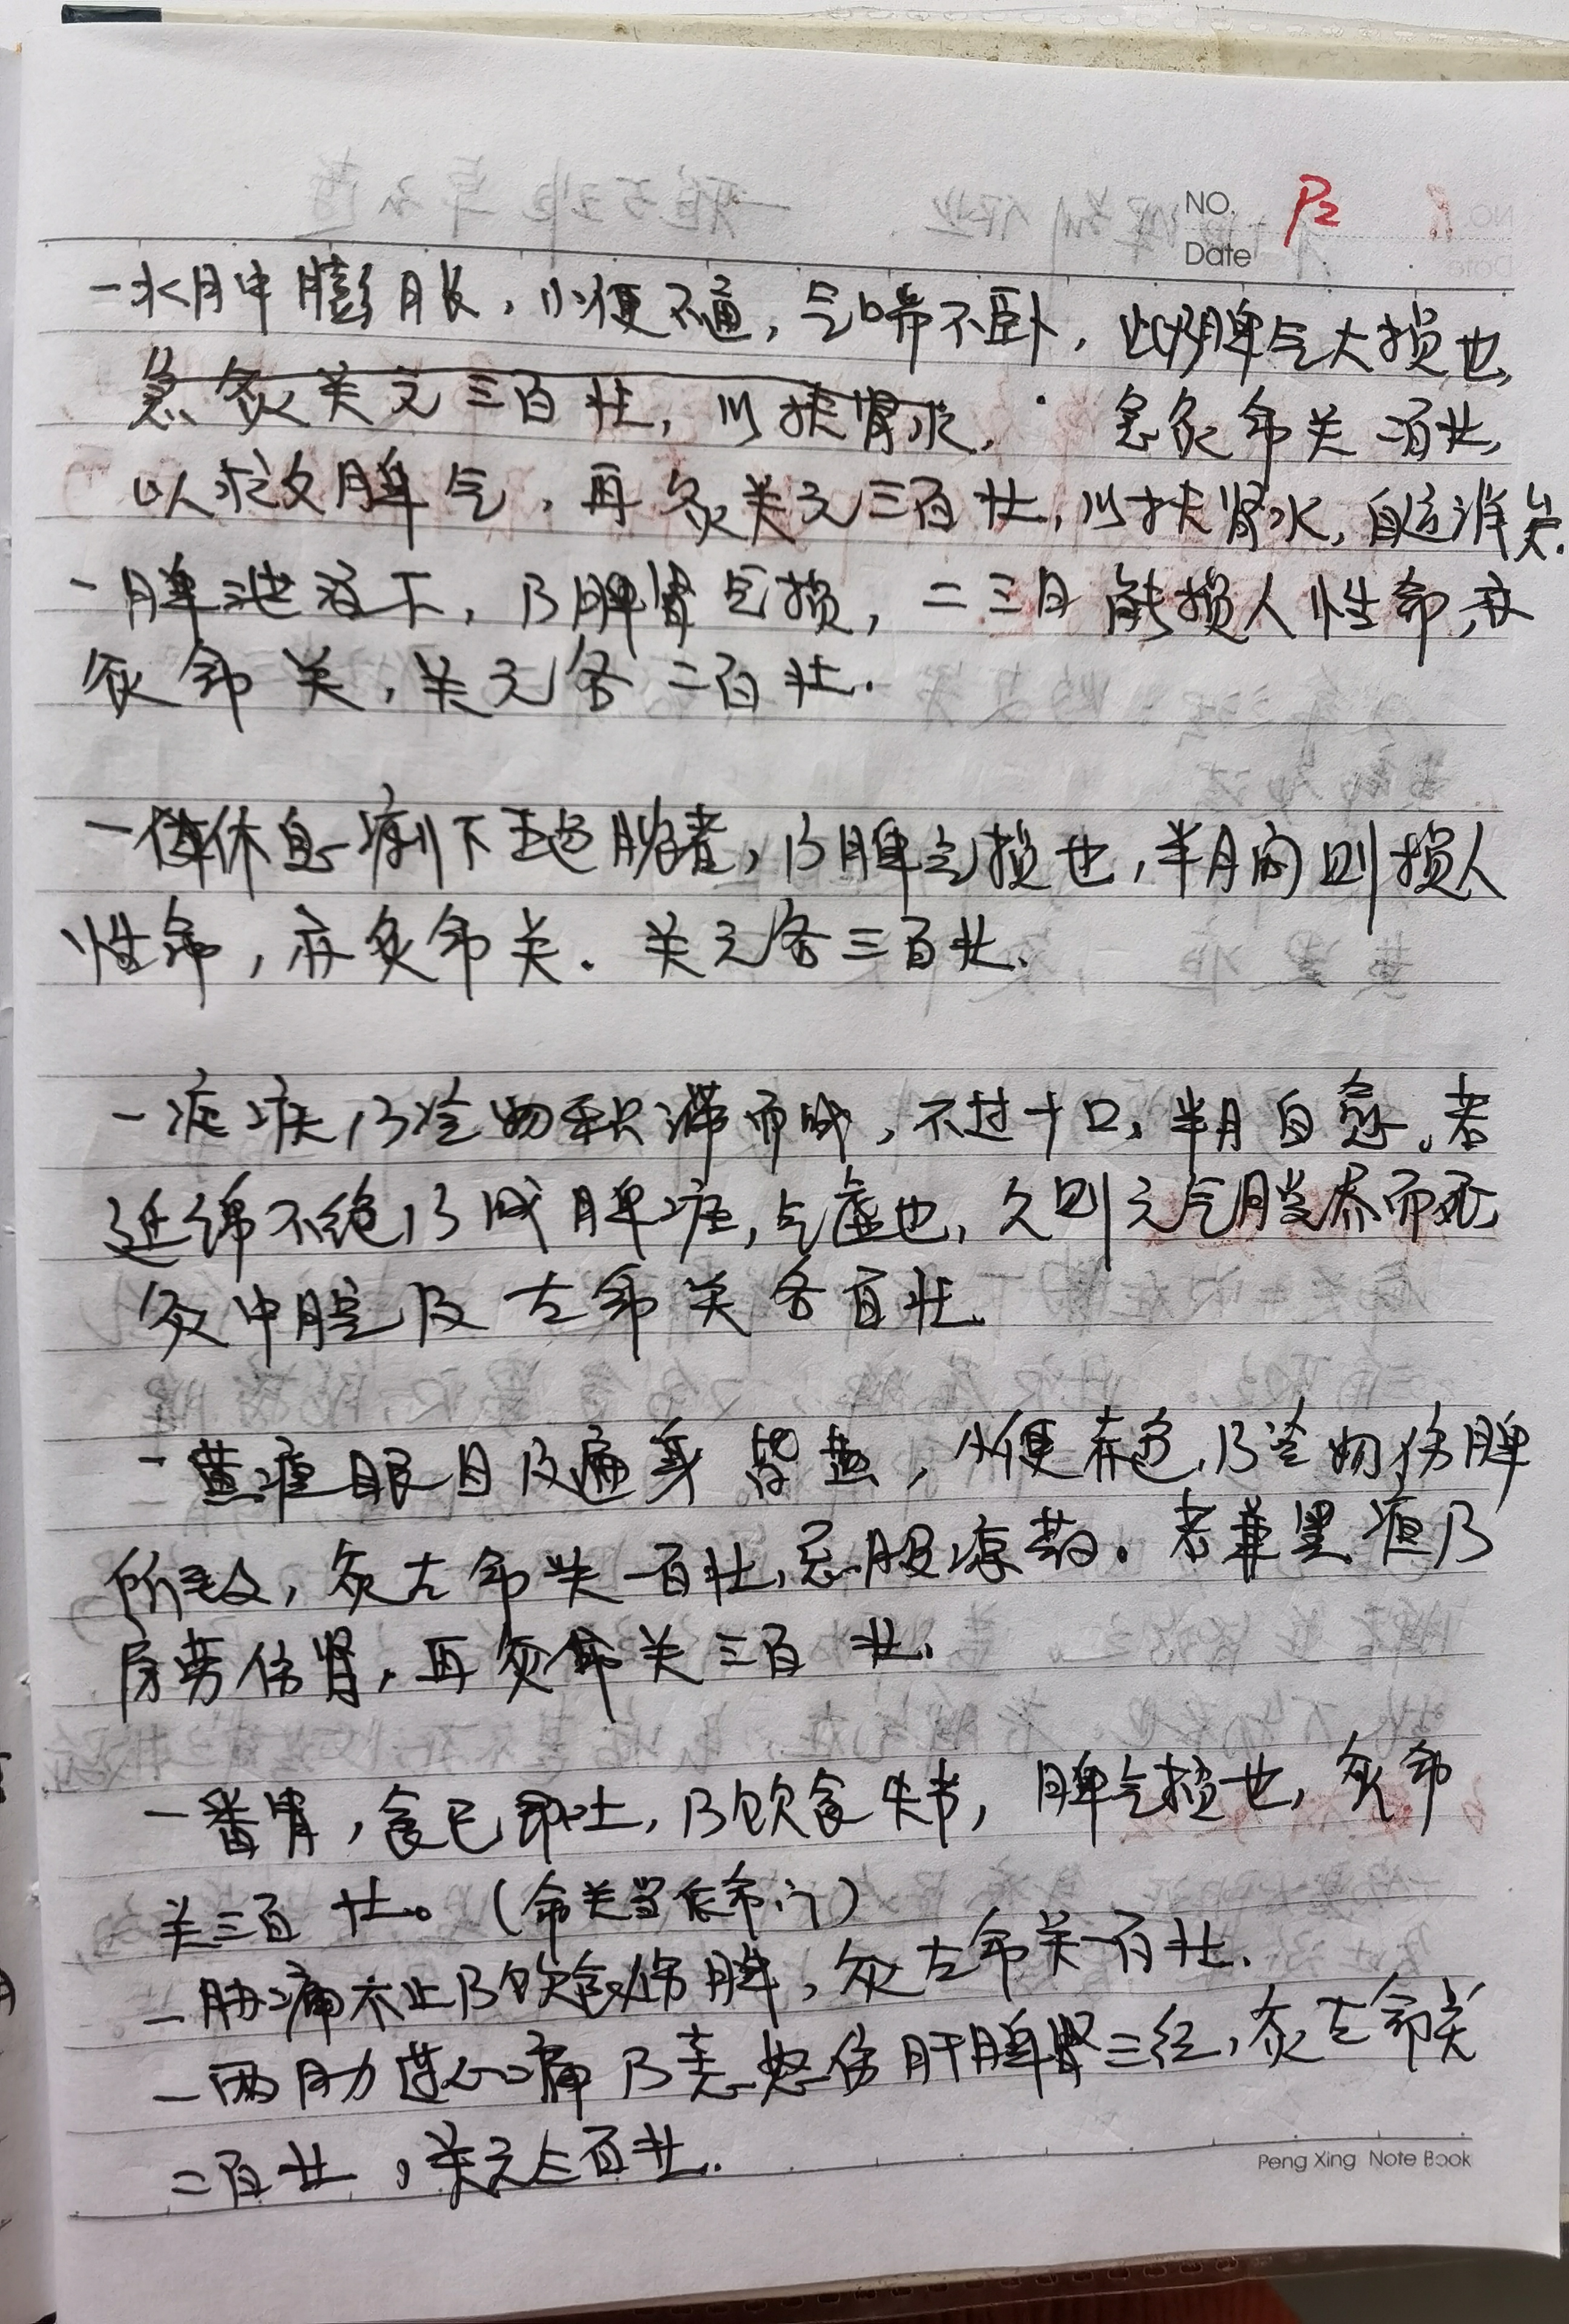 NO. P2
Date
一水肿膨胀，小便不通，气喘不卧，此脾气大损也，
急灸关元三百壮，以扶肾水，急灸命关二百壮，
以救脾气，再灸关元三百壮，以扶肾水，自运消矣.
一脾泄注下，乃脾肾气损，二三月能损人性命，亦
灸命关，关元各二百壮.
一休息痢下五色脓者，乃脾气损也，半月间则损人
性命，亦灸命关.关元各三百壮.
一疟疾乃冷物积滞而成，不过十日，半月自愈。若
延绵不绝乃成脾疟，气虚也，久则元气脱尽而死
灸中脘及左命关各百壮.
一黄疸眼目及遍身皆黄，小便赤色，乃冷物伤脾
所致，灸左命关一百壮，忌服凉药。若兼黑疸乃
房劳伤肾，再灸命关三百壮.
一番胃，食已即吐，乃饮食失节，脾气损也，灸命
关三百壮。（命关当作命门）
一胁痛不止乃饮食伤脾，灸左命关一百壮.
一两胁连心痛乃恚怒伤肝脾肾三经，灸左命关
二百壮，关元三百壮.
Peng Xing Note Book